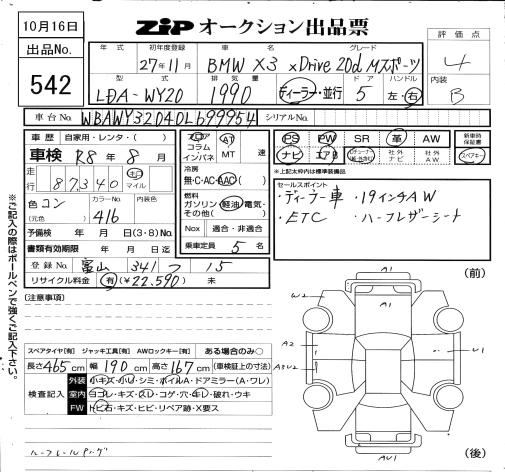 10月16日
ZIP オークション出品票
出品No.
542
年式 初年度登録 車名 グレード 評価点
27年11月 BMW X3 xDrive 20d Mスポーツ 4
型式 排気量 ドア ハンドル 内装
LDA-WY20 1990 ディーラー・並行 5 左・右 B
車台No. WBAWY32040L699954 シリアルNo.
車歴 自家用・レンタ・( )
車検 R8年8月
走行 87340 キロ マイル
色 コン カラーNo. 内装色
(元色) 416
予備検 年 月 日(3・8)No.
書類有効期限 年 月 日迄
登録No. 富山 341 フ 15
リサイクル料金 有(¥22,590) 未
フロア コラム インパネ AT MT 速
冷房
無・C・AC・AAC( )
燃料
ガソリン・軽油・電気・その他( )
Nox 適合・非適合
乗車定員 5名
PS PW SR 革 AW 新車時保証書
ナビ エアB 社外ナビ 社外AW スペアキー
*上記太枠内は標準装備品
セールスポイント
・ディーラー車 ・19インチAW
・ETC ・ハーフレザーシート
(注意事項)
スペアタイヤ[有] ジャッキ工具[有] AWロックキー[有] ある場合のみ○
長さ465cm 幅190cm 高さ167cm (車検証上の寸法)
検査記入 外装 小キズ・小U・シミ・ホイルA・ドアミラー(A・ワレ)
室内 ヨゴレ・キズ・スレ・コゲ・穴・キレ・破れ・ウキ
FW トビ石・キズ・ヒビ・リペア跡・X要ス
(前)
A1
W2
A2
A3U2
U1
A1
AU1
(後)
※ご記入の際はボールペンで強くご記入下さい。